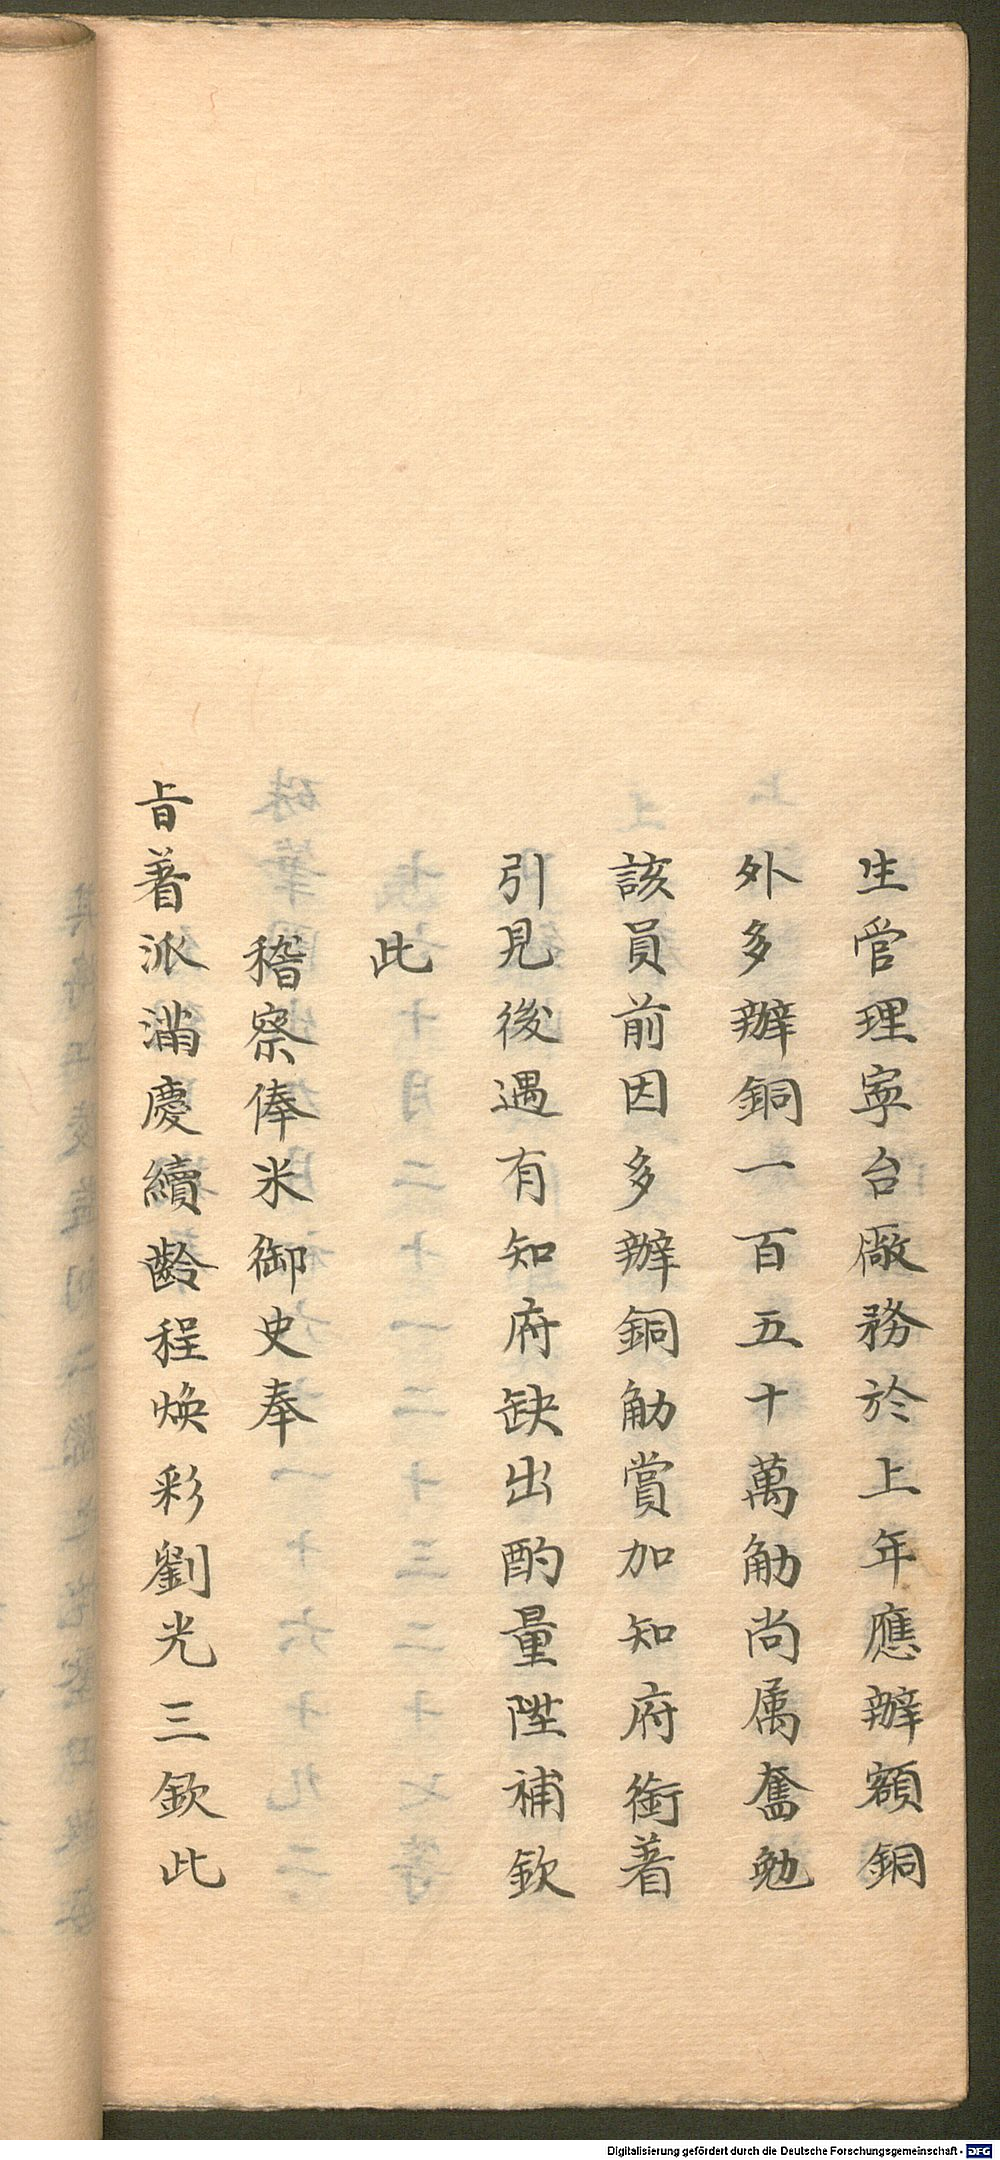 生管理寧台廠務於上年應辦額銅
外多辦銅一百五十萬觔尚属奮勉
該員前因多辦銅觔賞加知府銜着
引見後遇有知府缺出酌量陞補欽
此
稽察俸米御史奉
旨着派滿慶續齡程煥彩劉光三欽此
Digitalisierung gefördert durch die Deutsche Forschungsgemeinschaft - DFG